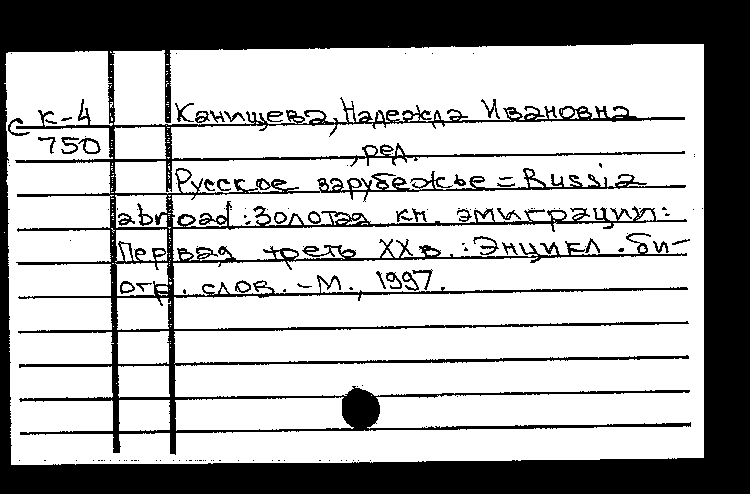 С К-4
750
Канищева, Надежда Ивановна
, ред.
Русское зарубежье = Russia
abroad : Золотая кн. эмиграции :
Первая треть XX в. : Энцикл. би-
огр. слов. - М., 1997.